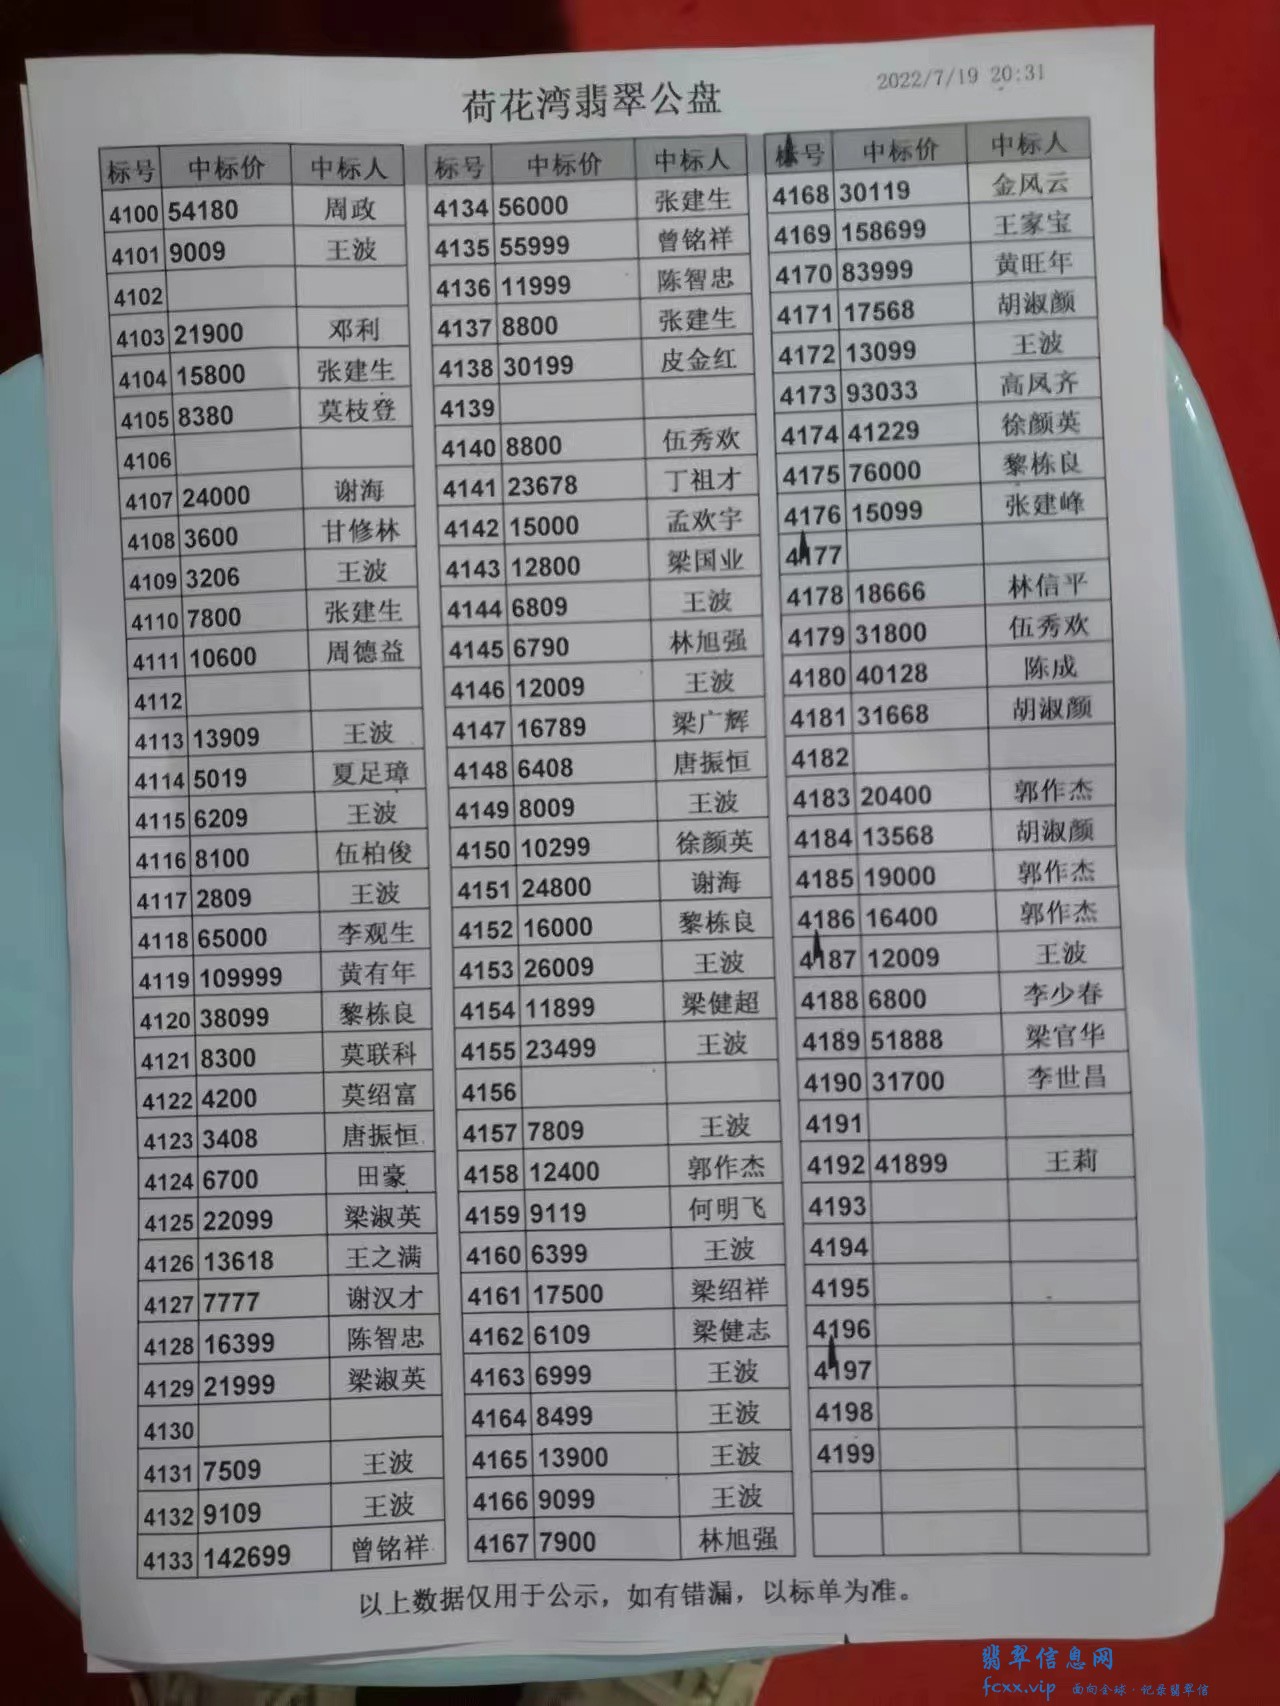 2022/7/19 20:31
荷花湾翡翠公盘
标号 中标价 中标人
4100 54180 周政
4101 9009 王波
4102
4103 21900 邓利
4104 15800 张建生
4105 8380 莫枝登
4106
4107 24000 谢海
4108 3600 甘修林
4109 3206 王波
4110 7800 张建生
4111 10600 周德益
4112
4113 13909 王波
4114 5019 夏足璋
4115 6209 王波
4116 8100 伍柏俊
4117 2809 王波
4118 65000 李观生
4119 109999 黄有年
4120 38099 黎栋良
4121 8300 莫联科
4122 4200 莫绍富
4123 3408 唐振恒
4124 6700 田豪
4125 22099 梁淑英
4126 13618 王之满
4127 7777 谢汉才
4128 16399 陈智忠
4129 21999 梁淑英
4130
4131 7509 王波
4132 9109 王波
4133 142699 曾铭祥
标号 中标价 中标人
4134 56000 张建生
4135 55999 曾铭祥
4136 11999 陈智忠
4137 8800 张建生
4138 30199 皮金红
4139
4140 8800 伍秀欢
4141 23678 丁祖才
4142 15000 孟欢宇
4143 12800 梁国业
4144 6809 王波
4145 6790 林旭强
4146 12009 王波
4147 16789 梁广辉
4148 6408 唐振恒
4149 8009 王波
4150 10299 徐颜英
4151 24800 谢海
4152 16000 黎栋良
4153 26009 王波
4154 11899 梁健超
4155 23499 王波
4156
4157 7809 王波
4158 12400 郭作杰
4159 9119 何明飞
4160 6399 王波
4161 17500 梁绍祥
4162 6109 梁健志
4163 6999 王波
4164 8499 王波
4165 13900 王波
4166 9099 王波
4167 7900 林旭强
标号 中标价 中标人
4168 30119 金风云
4169 158699 王家宝
4170 83999 黄旺年
4171 17568 胡淑颜
4172 13099 王波
4173 93033 高凤齐
4174 41229 徐颜英
4175 76000 黎栋良
4176 15099 张建峰
4177
4178 18666 林信平
4179 31800 伍秀欢
4180 40128 陈成
4181 31668 胡淑颜
4182
4183 20400 郭作杰
4184 13568 胡淑颜
4185 19000 郭作杰
4186 16400 郭作杰
4187 12009 王波
4188 6800 李少春
4189 51888 梁官华
4190 31700 李世昌
4191
4192 41899 王莉
4193
4194
4195
4196
4197
4198
4199
以上数据仅用于公示，如有错漏，以标单为准。
翡翠信息网
fcxx.vip 面向全球·记录翡翠信